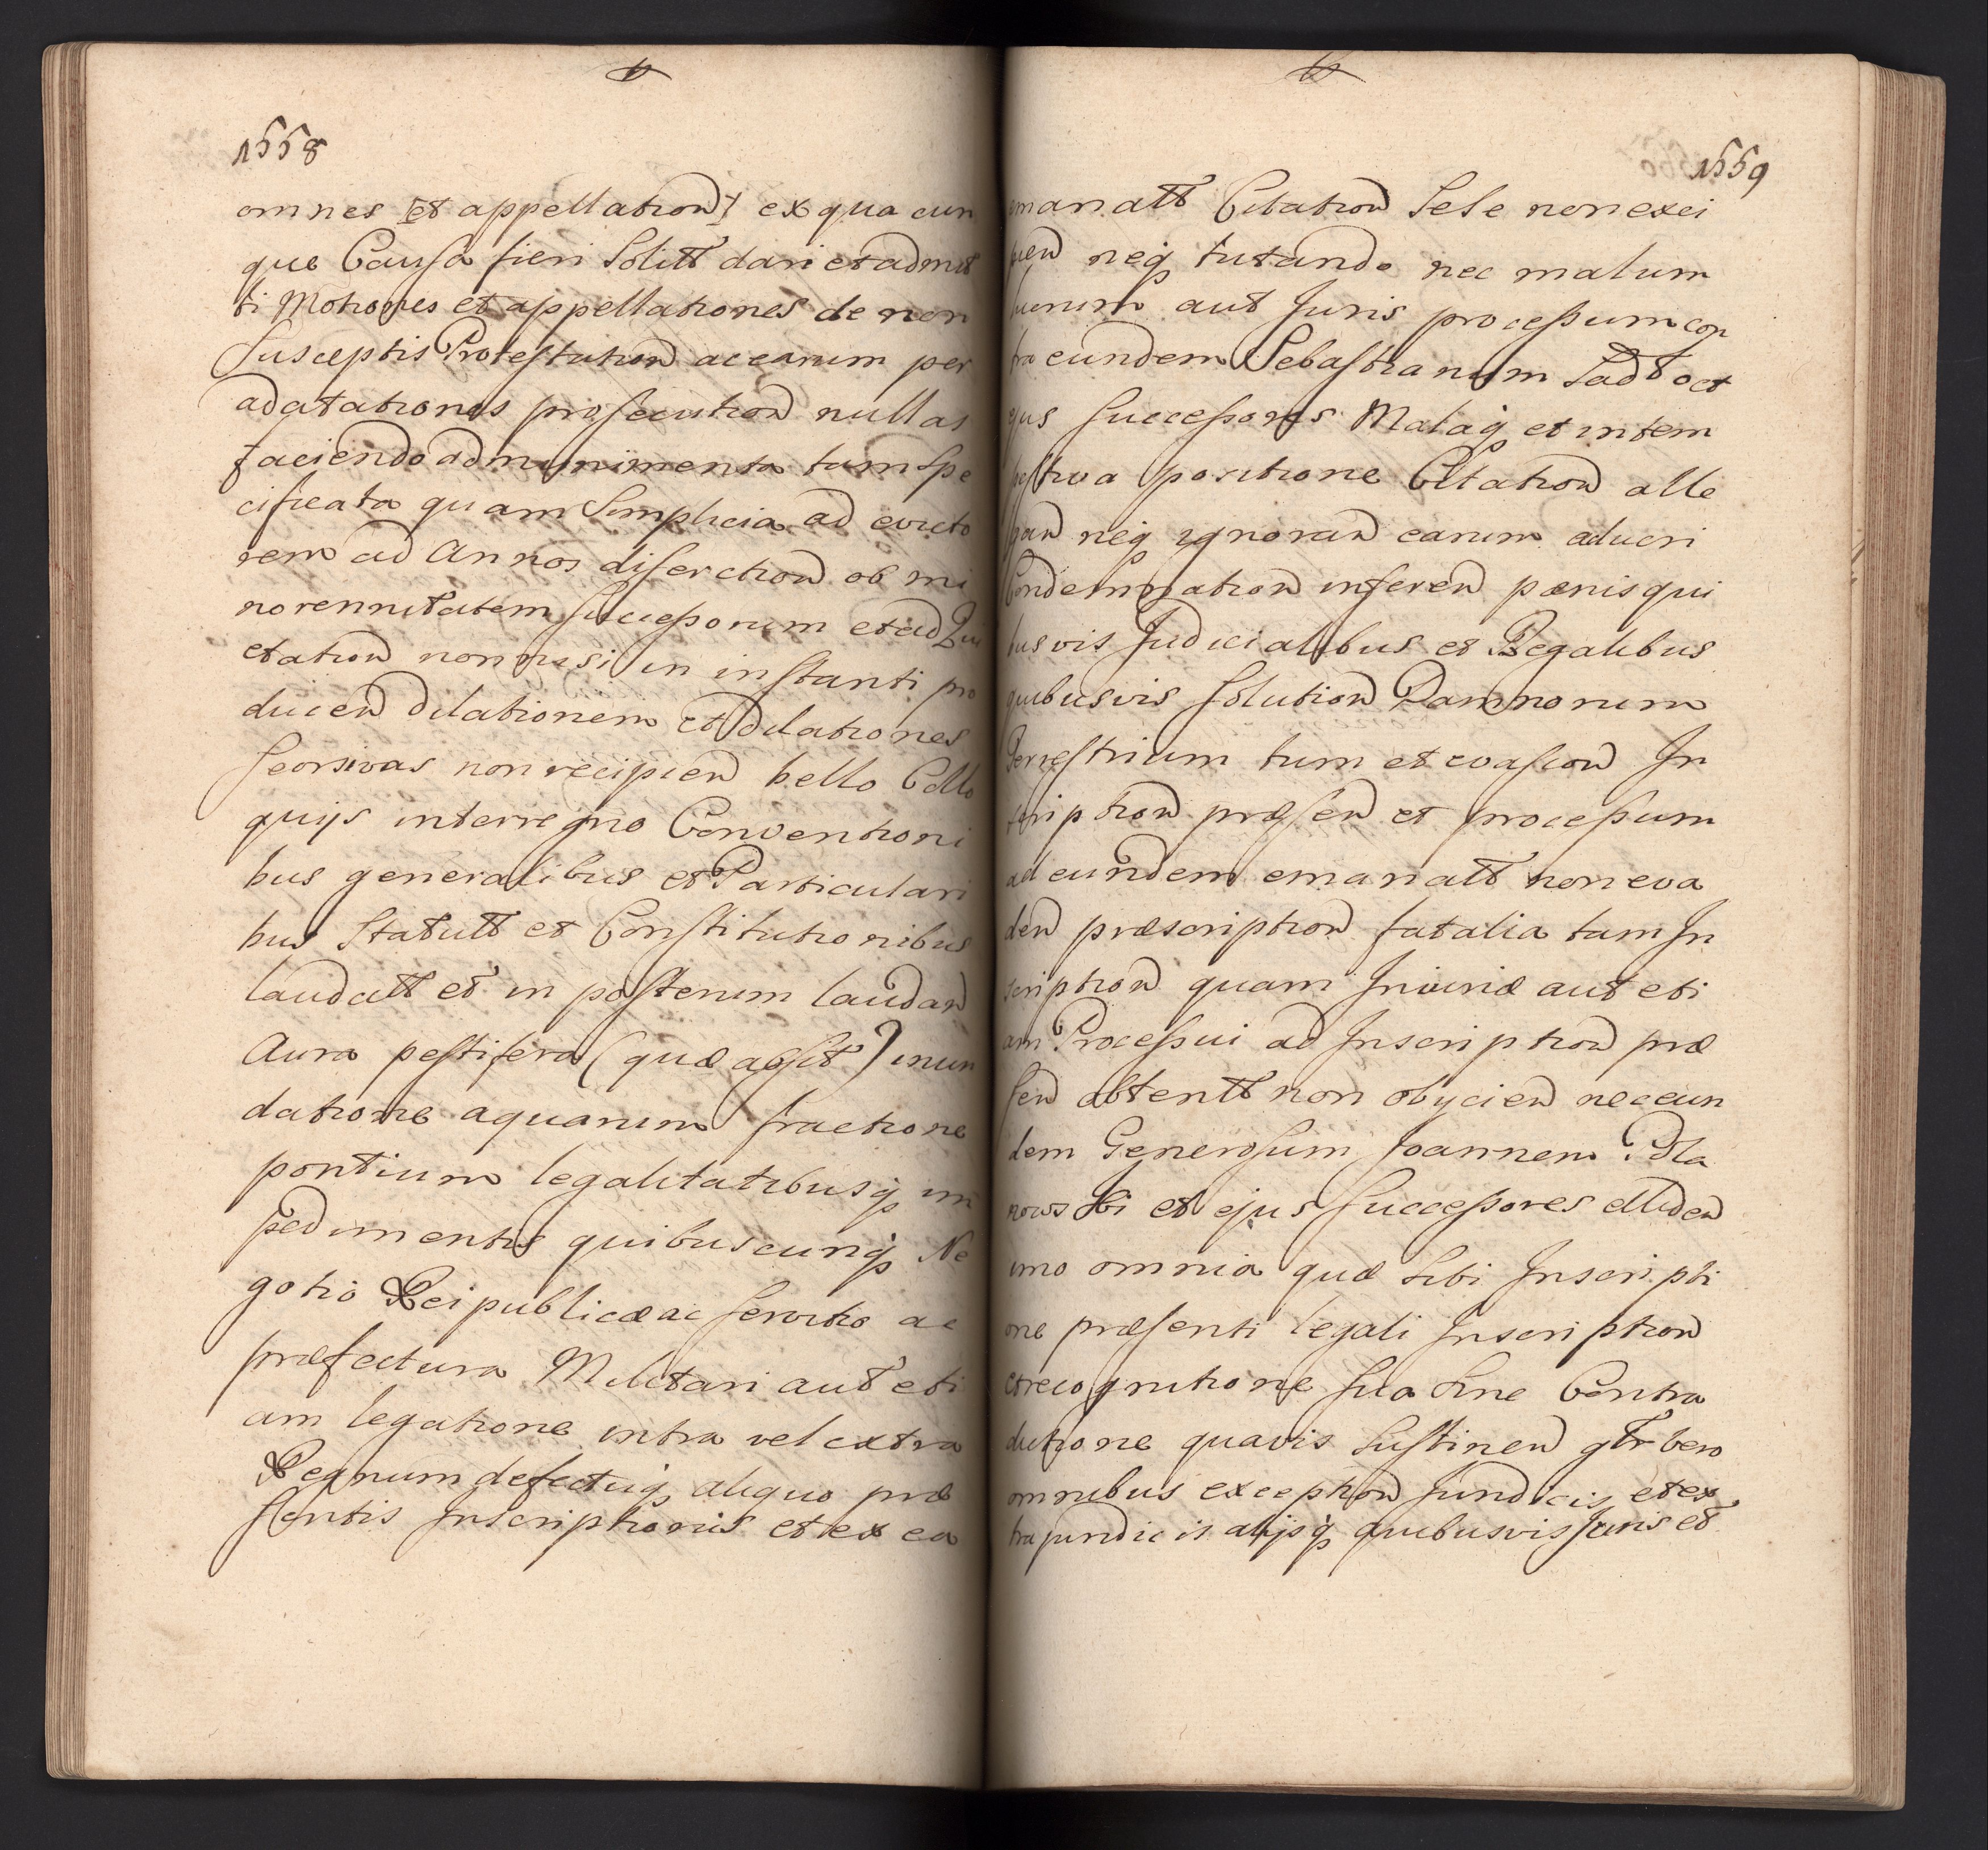 1558
omnes [et appellation] ex qua cun
que Causa fieri Solitt dari et admit
ti Motiones et appellationes de non
Susceptis Protestation ac earum per
adatationes prosecution nullas
faciendo ad munimenta tam Spe
cificata quam Simplicia ad evicto
rem ad Annos discretion ob mi
norennitatem Successorum et ad Qui
etation non nisi in instanti pro
ducen dilationem et dilationes
Seorsivas non recipien bello Collo
quijs interregno Convention
bus generalibus et Particulari
bus Statutt et Constitutionibus
laudatt et in posterum laudan
Aura pestifera (quæ absit) inun
datione aquarum fractione
pontium legalitatibusq im
pedimentis quibuscunq Ne
gotio Reipublicæ ac Servitio ac
præfectura Militari aut eti
am legatione intra vel extra
Regnum defectuq aliquo præ
sentis Inscriptionis et ex ea
1559
emanatt Citation Sese non exci
pien neq tutando nec malum
Iurum aut Juris processum con
tra eundem Sebastianum et
ejus Successores Malaq et intem
pestiva positione Citation alle
gan neq ignoran earum aducri
Condemnation inferen pœnis qui
busvis Judicialibus et Regalibus
quibusvis Solution Damnorum
Terrestrium tum et evasion In
scription præsen et processum
ad eundem emanatt non eva
den præscription fatalia tam In
scription quam Injuriæ aut eti
am Processui ad Inscription præ
sen obtentt non obijcien nec eun
dem Generosum Joannem Pola
nowski et ejus Successores eliden
imo omnia quæ Sibi Inscripti
one præsenti legali Inscription
et recognitione Sua Sine Contra
dictione quavis Sustinen gtr vero
omnibus exception Juridicis et ex
trajuridicis alijsq quibusvis Juris et